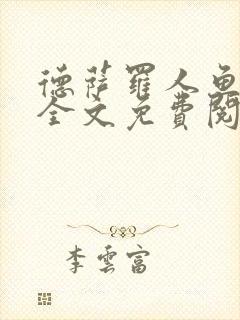 德萨罗人鱼
全文免費閱
李雲富